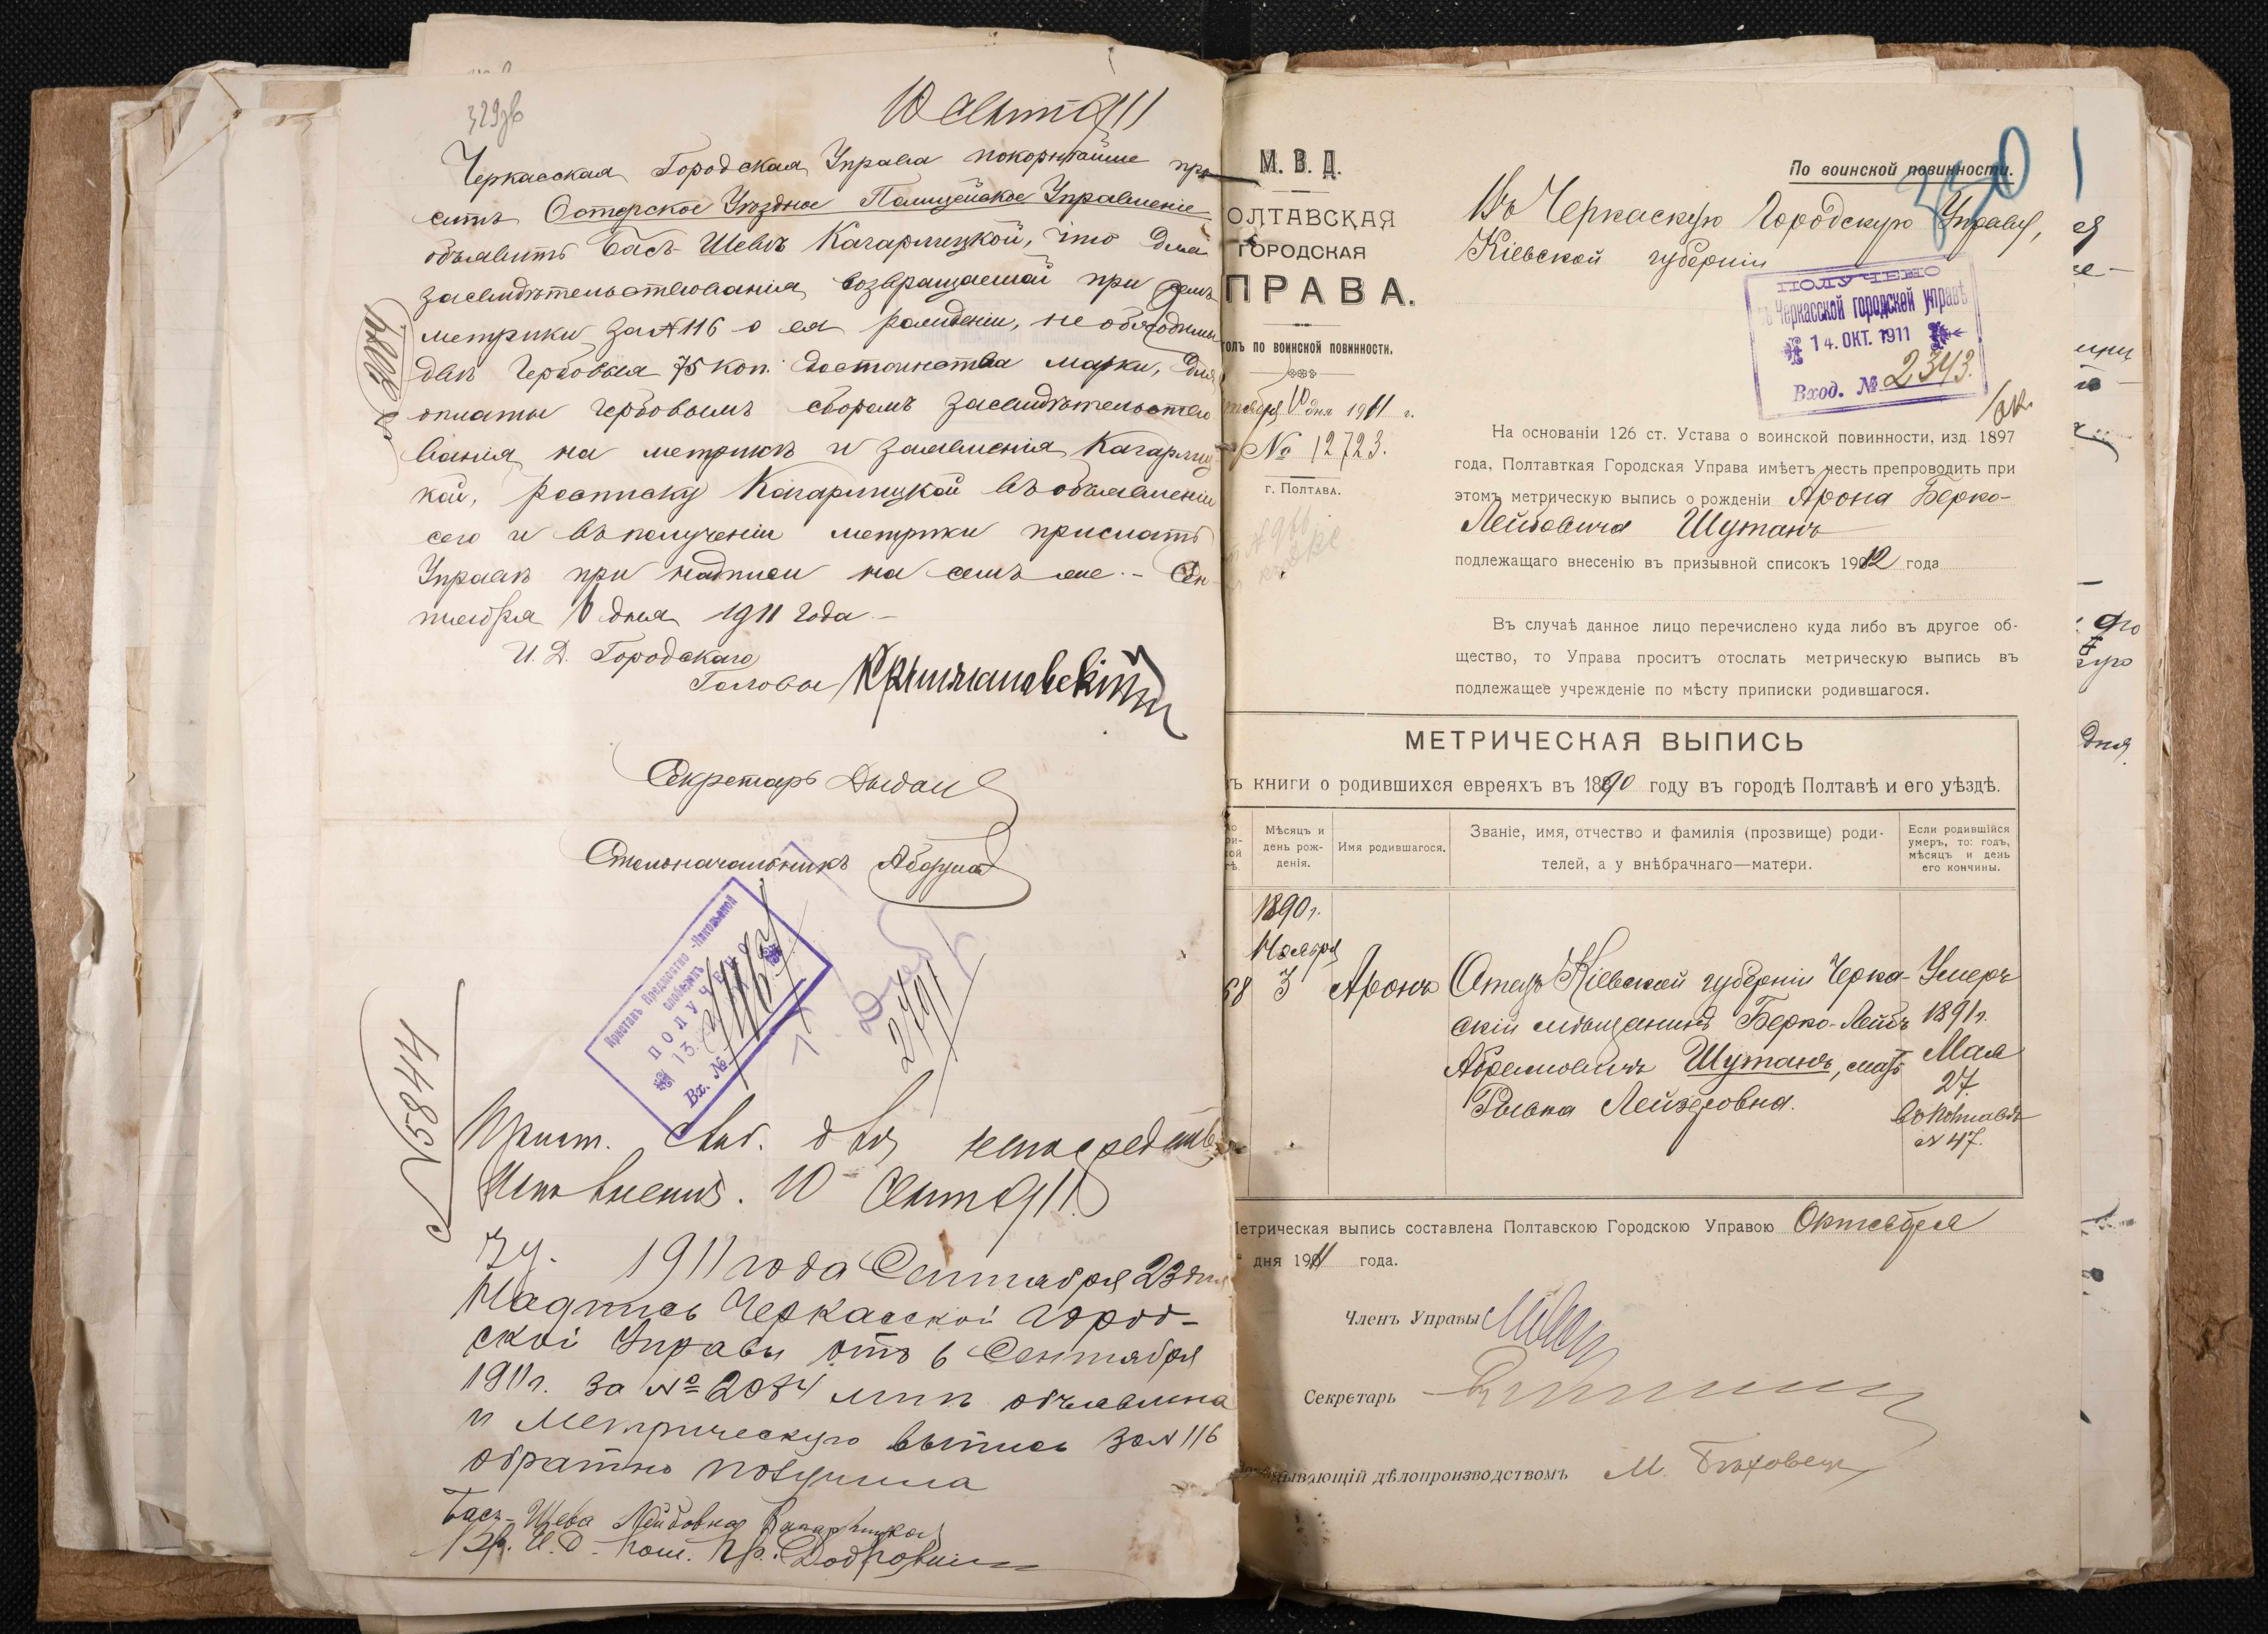 329зв
10 Сент 911
Черкасская Городская Управа покорнѣйше про
ситъ Остерское Уѣздное Полицейское Управленіе
объявить Бась-Шевѣ Кагарлицкой, что для
засвидѣтельствованія возвращаемой при семъ
метрики за № 116 о ея рожденіи, необходимы
двѣ гербовыя 75 коп. достоинства марки, для
оплаты гербовымъ сборомъ засвидѣтельство
ванія на метрикѣ и заявленія Кагарлиц
кой, росписку Кагарлицкой въ объявленіи
сего и въ полученіи метрики прислать
Управѣ при надписи на семъ же. - Сен
тября 6 дня 1911 года -
№ 2084
И. Д. Городского
Головы
Секретарь
Столоначальникъ
Приставъ Предмостно-Никольской
слободокъ
ПОЛУЧЕНО
13
Вх. №
2791
№ 5844
Прист. Ник. для непосредств
Исполненія. 10 Сент 911
1911 года Сентября 23 дня
Надпись Черкасской Город-
ской Управы отъ 6 Сентября
1911 г. за № 2084 мнѣ объявлена
и Метрическую выпись за № 116
обратно получила
Бась-Шева Лейбовна Кагарлицкая
М. В. Д.
ОЛТАВСКАЯ
ГОРОДСКАЯ
ПРАВА.
толъ по воинской повинности.
ктября 10 дня 1911 г.
№ 12723.
г. Полтава.
По воинской повинности.
330
Въ Черкаскую Городскую Управу,
Кіевской губерніи
ПОЛУЧЕНО
въ Черкасской городской управѣ
14. ОКТ. 1911
Вход. № 2343.
На основаніи 126 ст. Устава о воинской повинности, изд. 1897
года, Полтавткая Городская Управа имѣетъ честь препроводить при
этомъ метрическую выпись о рожденіи Арона Берко-
Лейбовича Шутанъ
подлежащаго внесенію въ призывной списокъ 1912 года
Въ случаѣ данное лицо перечислено куда либо въ другое об-
щество, то Управа проситъ отослать метрическую выпись въ
подлежащее учрежденіе по мѣсту приписки родившагося.
МЕТРИЧЕСКАЯ ВЫПИСЬ
ъ книги о родившихся евреяхъ въ 1890 году въ городѣ Полтавѣ и его уѣздѣ.
Мѣсяцъ и
день рож-
денія.
Имя родившагося.
Званіе, имя, отчество и фамилія (прозвище) роди-
телей, а у внѣбрачнаго—матери.
Если родившійся
умеръ, то: годъ,
мѣсяцъ и день
его кончины.
1890 г.
Ноября
68 3 Аронъ Отецъ Кіевской губерніи Черка- Умеръ
скій мѣщанинъ Берко-Лейбъ 1891 г.
Абрамовичъ Шутанъ, мать Мая
27
Рывка Лейзеровна.
въ Полтавѣ
№ 47.
Метрическая выпись составлена Полтавскою Городскою Управою Октября
дня 1911 года.
Членъ Управы
Секретарь
дывающій дѣлопроизводствомъ
дня